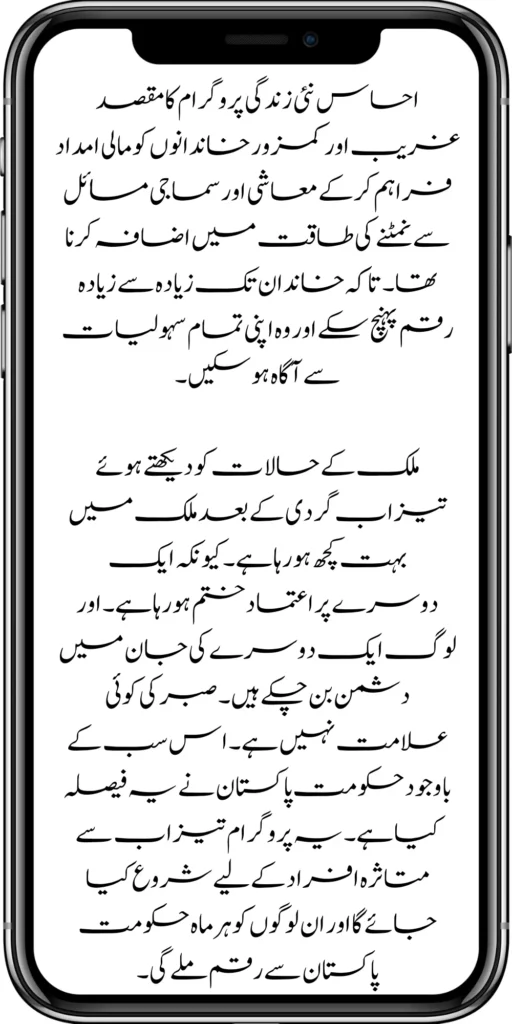 احساس نئی زندگی پروگرام کا مقصد
غریب اور کمزور خاندانوں کو مالی امداد
فراہم کر کے معاشی اور سماجی مسائل
سے نمٹنے کی طاقت میں اضافہ کرنا
تھا۔ تا کہ خاندان تک زیادہ سے زیادہ
رقم پہنچ سکے اور وہ اپنی تمام سہولیات
سے آگاہ ہو سکیں۔
ملک کے حالات کو دیکھتے ہوئے
تیزاب گردی کے بعد ملک میں
بہت کچھ ہو رہا ہے۔ کیونکہ ایک
دوسرے پر اعتماد ختم ہو رہا ہے۔ اور
لوگ ایک دوسرے کی جان میں
دشمن بن چکے ہیں۔ صبر کی کوئی
علامت نہیں ہے۔ اس سب کے
باوجود حکومت پاکستان نے یہ فیصلہ
کیا ہے۔ یہ پروگرام تیزاب سے
متاثرہ افراد کے لیے شروع کیا
جائے گا اور ان لوگوں کو ہر ماہ حکومت
پاکستان سے رقم ملے گی۔